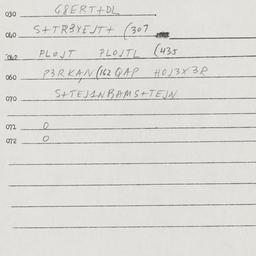 030 G8ERT+DL
040 S+TRBYEJT+ (307
042 PLOJT PLOJTL (435
060 P3RKA,N (162 QAP HOJ3X3R
070 S+TEJ1NBAMS+TEJN
071 0
072 0